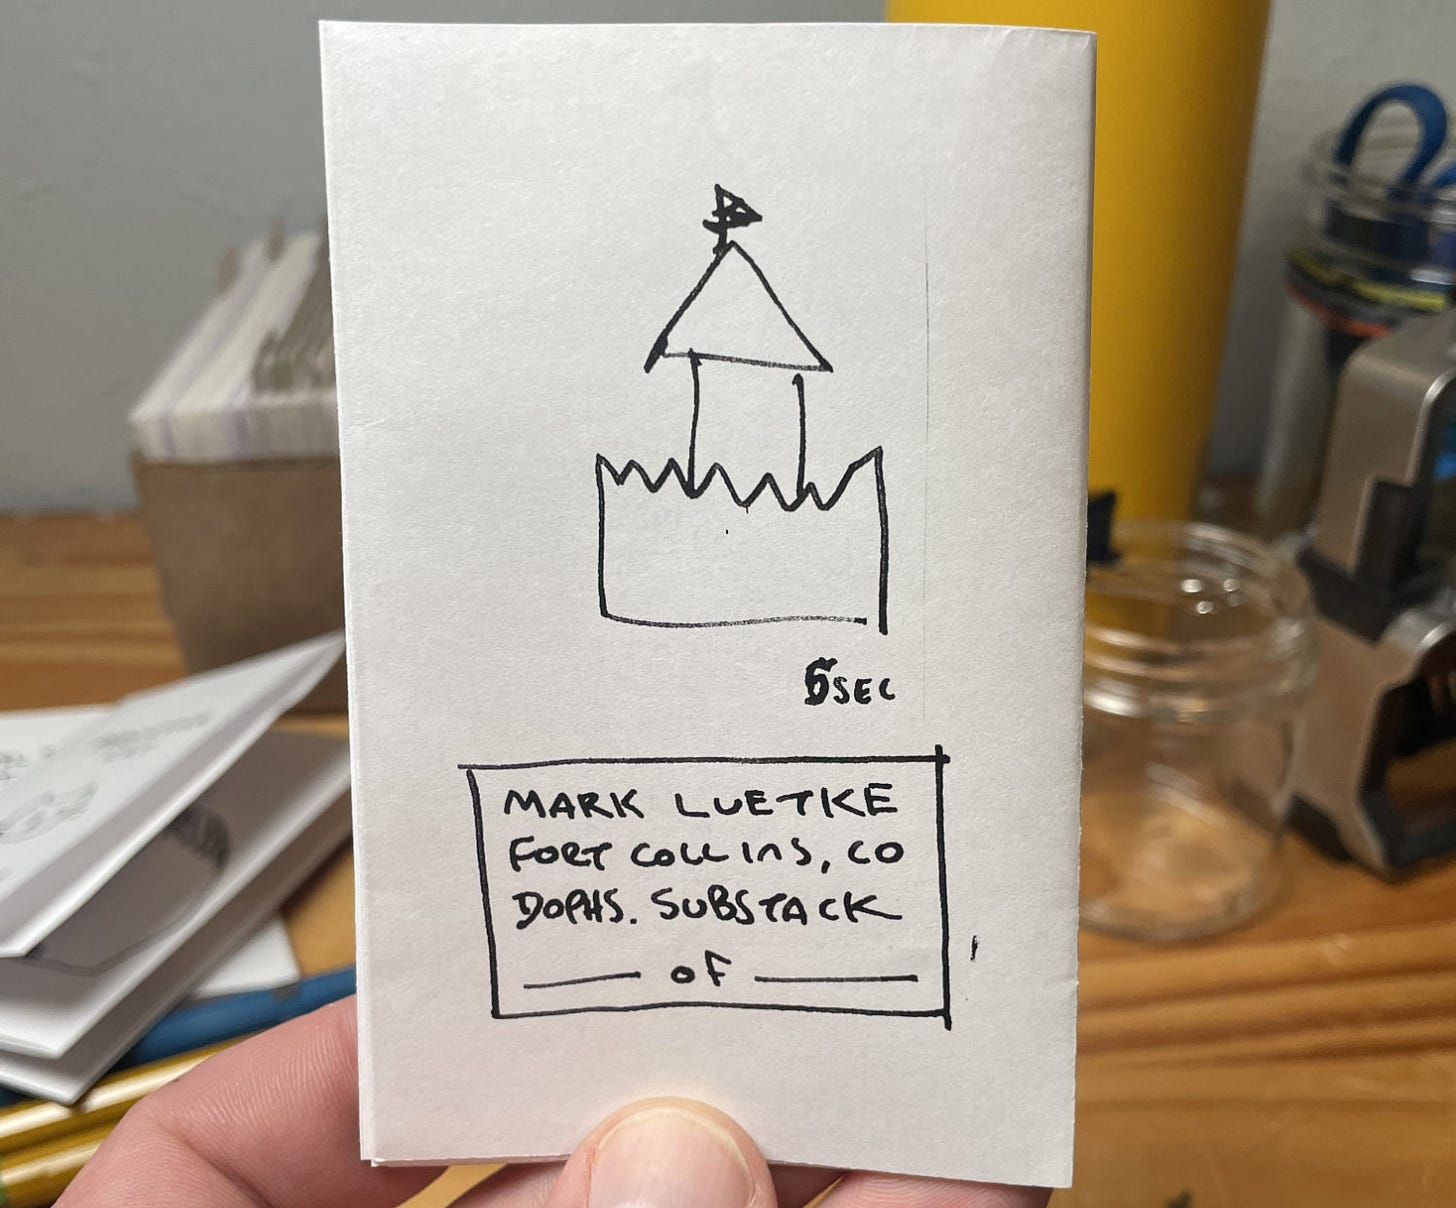 5SEC
MARK LUETKE
FORT COLLINS, CO
DOPHS. SUBSTACK
___ OF ___